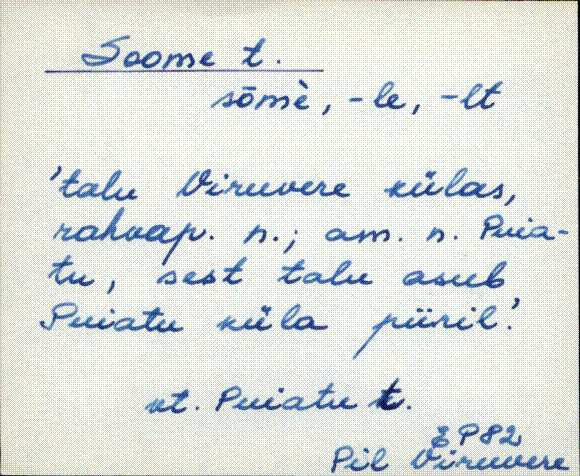 Soome t.
sōmè, -le, -lt
'talu Viruvere külas,
rahvap. n.; am. n. Puia-
tu, sest talu asub
Puiatu küla piiril.'
vt. Puiatu t.
EP82
Pil Viruvere